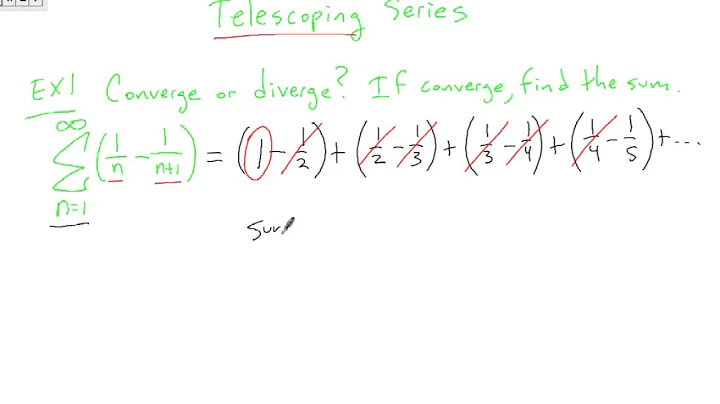 Telescoping Series
EX1 Converge or diverge? If converge, find the sum.
∞ ∑ n=1 (1/n - 1/(n+1)) = (1 - 1/2) + (1/2 - 1/3) + (1/3 - 1/4) + (1/4 - 1/5) + ...